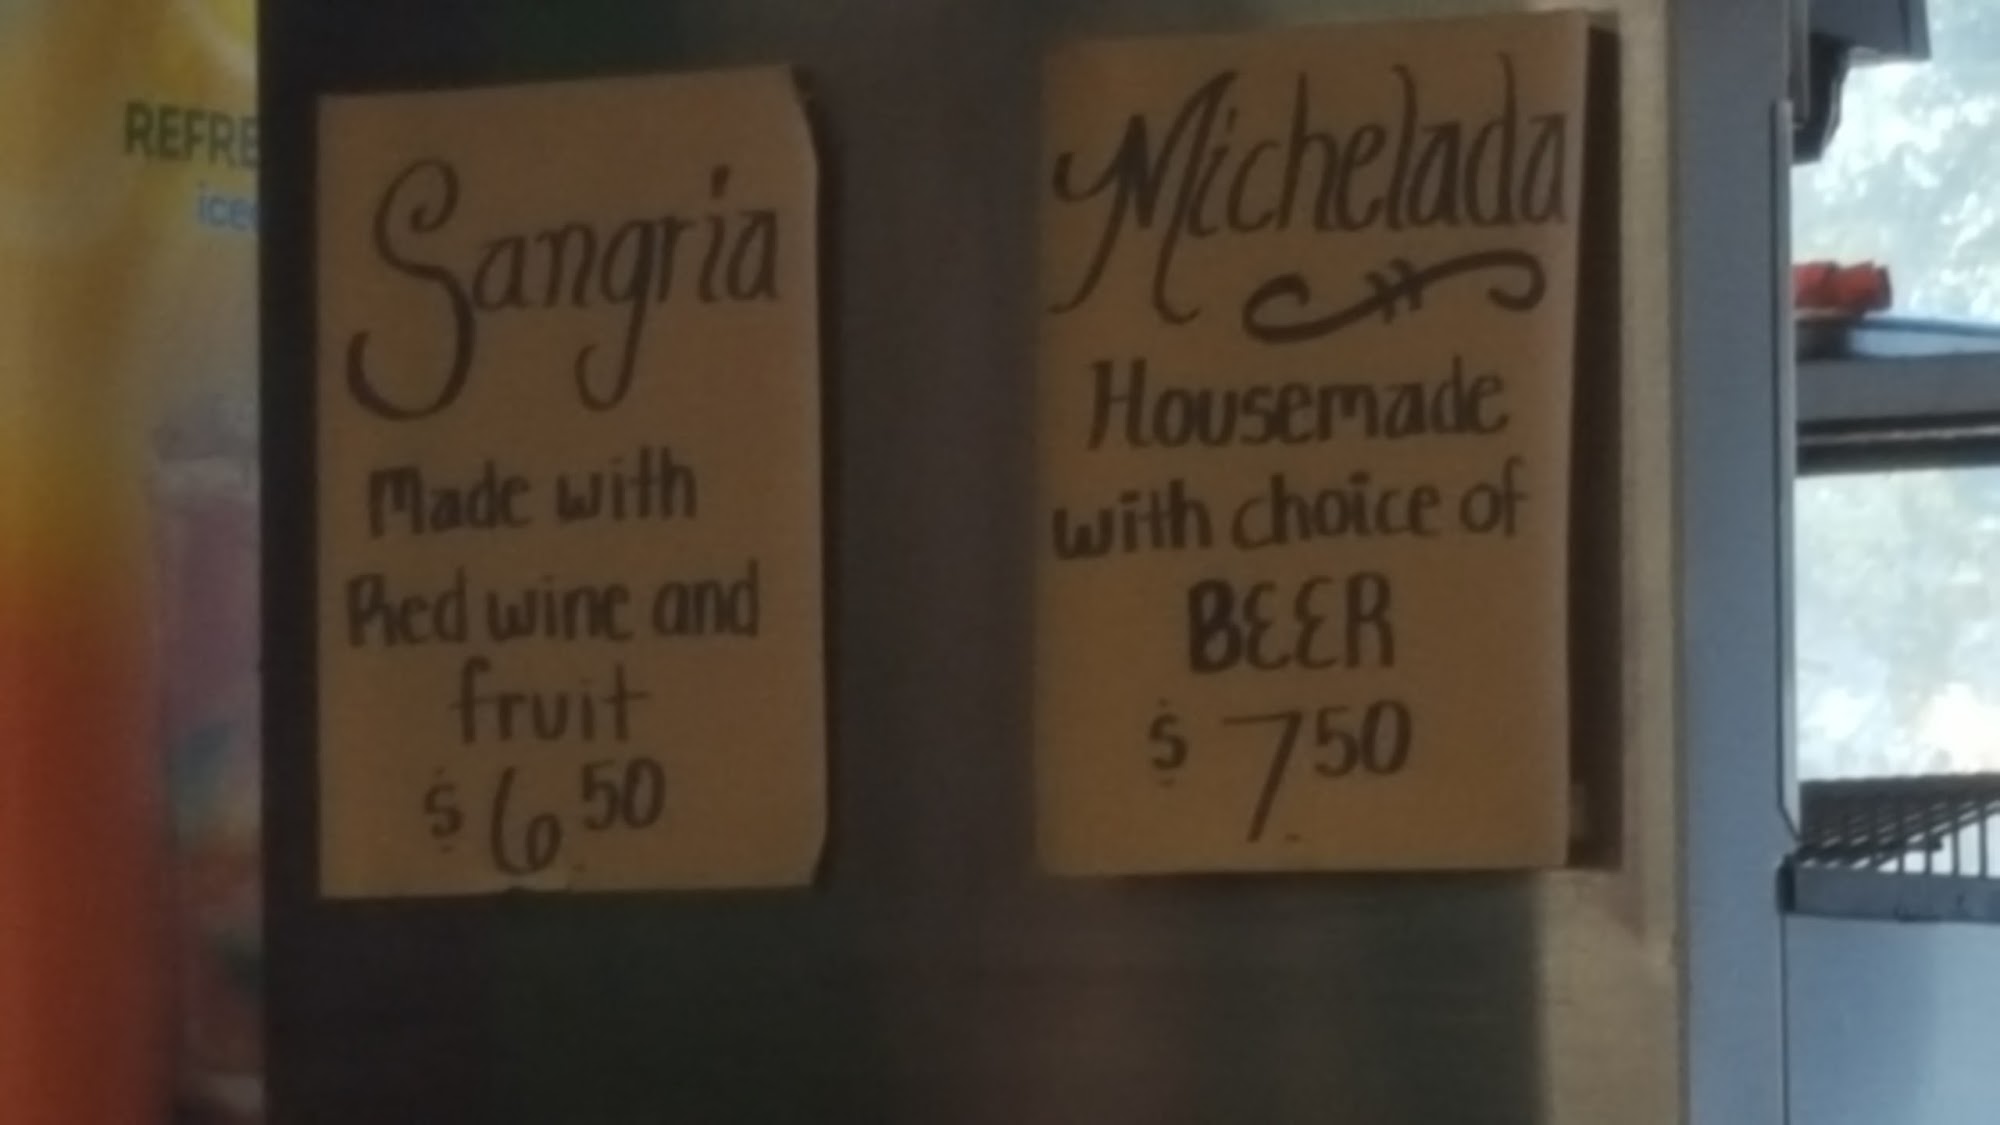 REFRE
iced
Sangria
Made with
Red wine and
fruit
$6.50
Michelada
Housemade
with choice of
BEER
$7.50